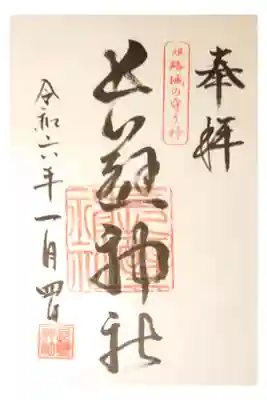 奉拝
姫路城の守り神
長壁神社
令和六年一月四日